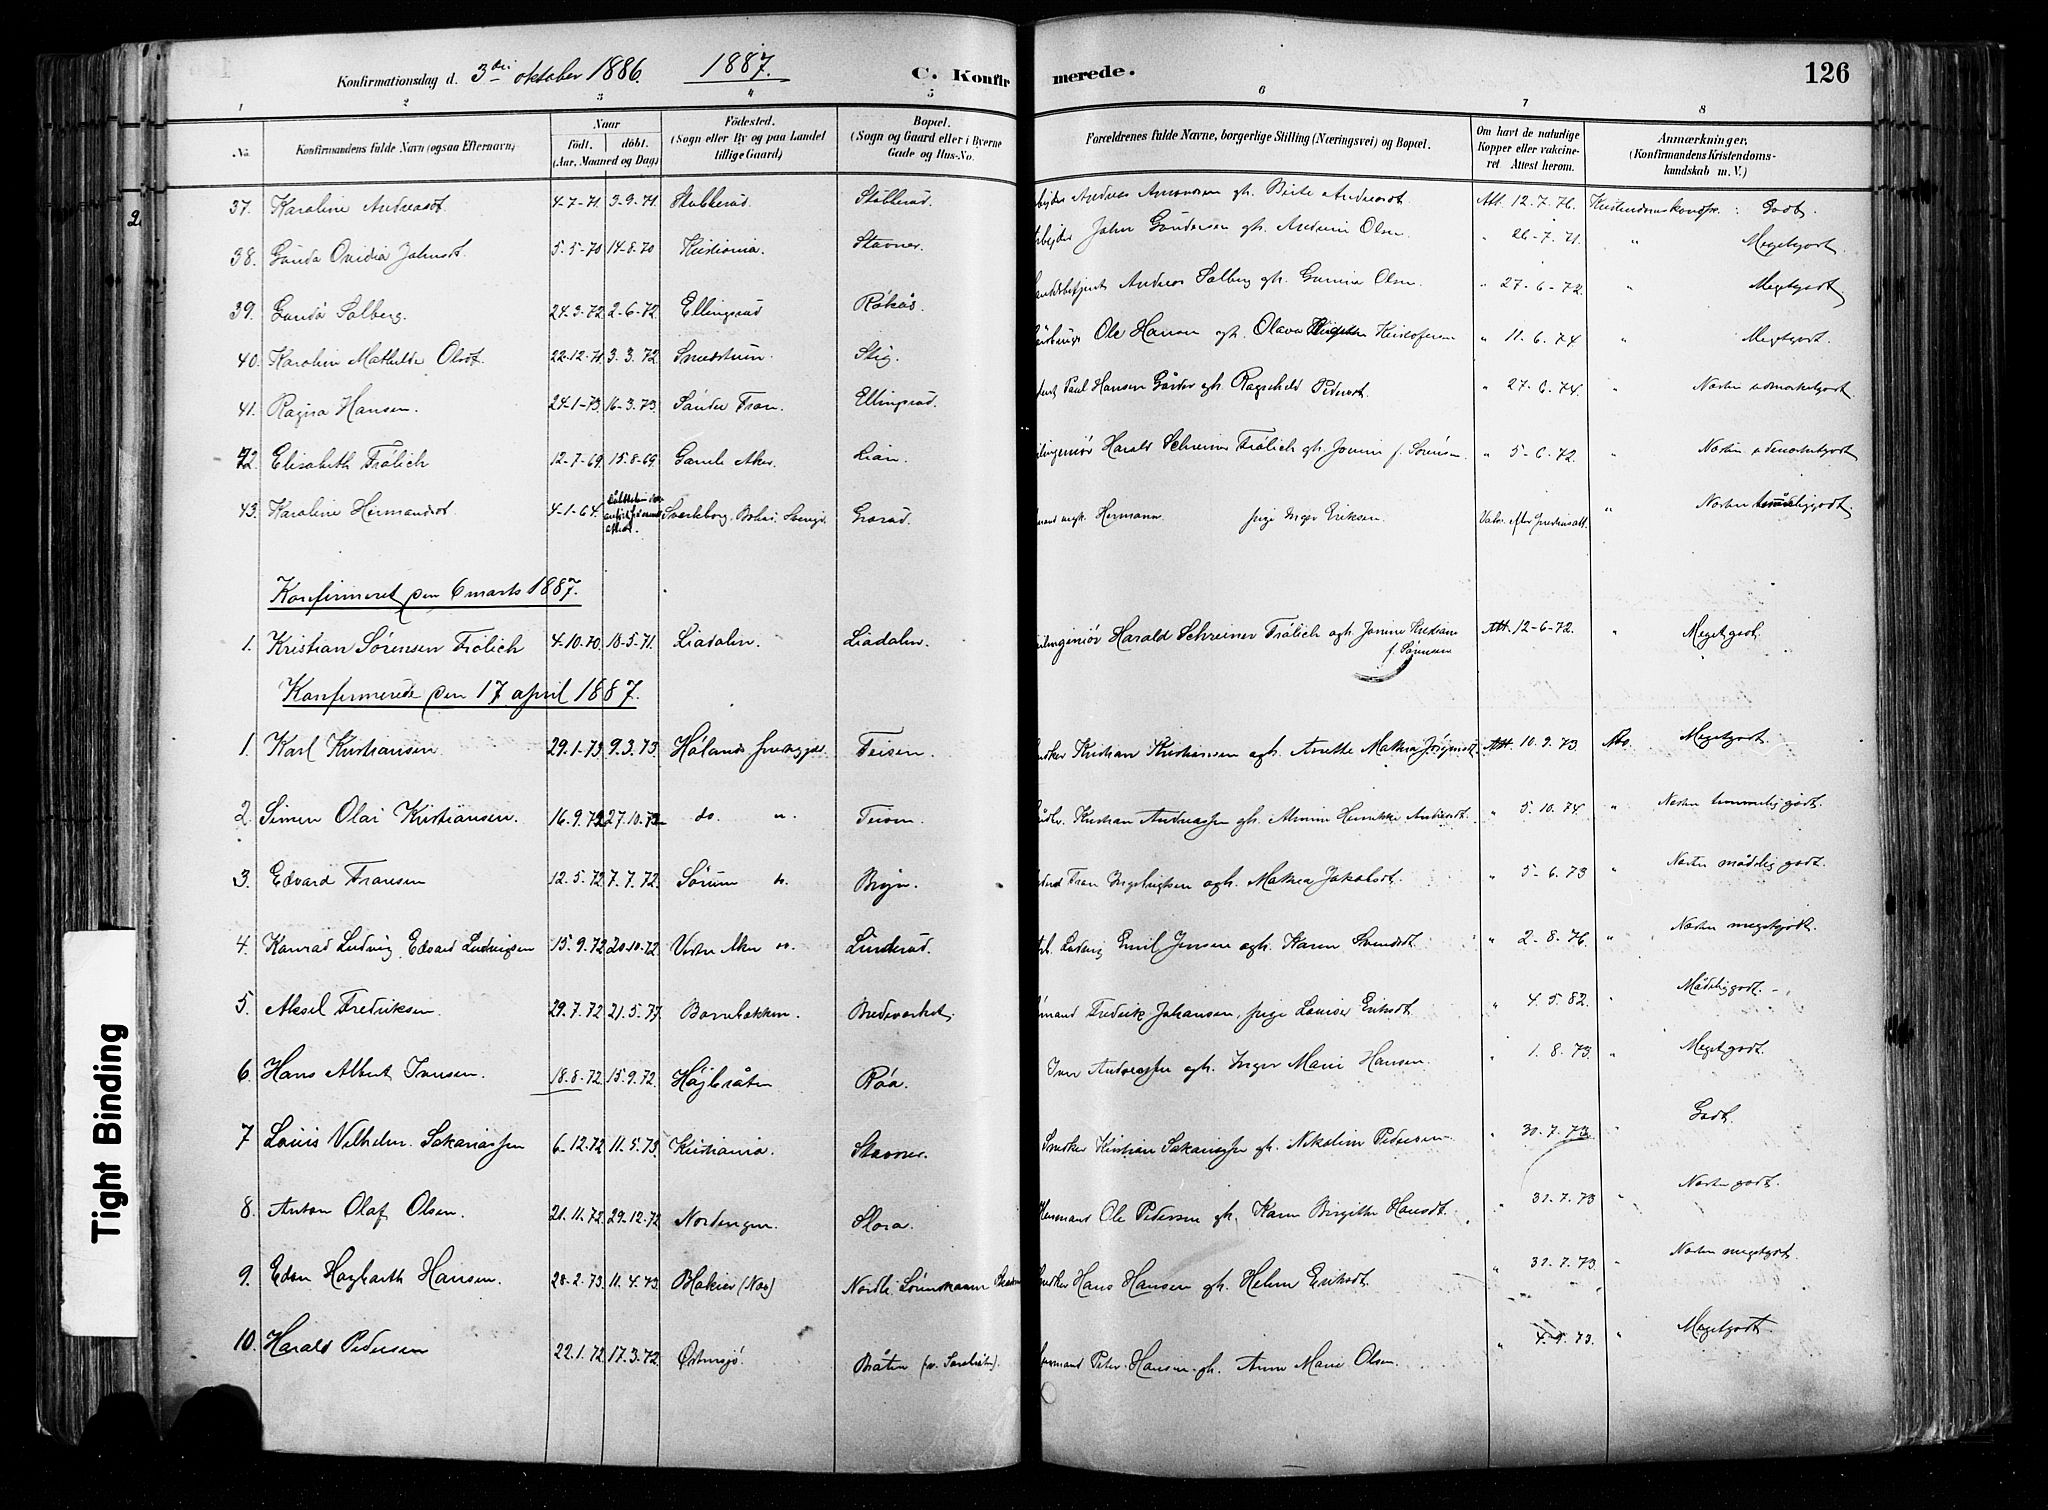 Konfirmationsdag d. 3die oktober 1886. 1887. C. Konfirmerede. 126
1 2 3 4 5 6 7 8
No. Konfirmandens fulde Navn (ogsaa Efternavn) Naar födt. döbt. (Aar, Maaned og Dag) Födested. (Sogn eller By og paa Landet tillige Gaard) Bopæl. (Sogn og Gaard eller i Byerne Gade og Hus-No. Forældrenes fulde Navne, borgerlige Stilling (Næringsvei) og Bopæl. Om havt de naturlige Kopper eller vakcineret Attest herom. Anmærkninger. (Konfirmandens Kristendomskundskab m. V.)
2
37. Karoline Andreasdt. 4-7-71 3-9.71. Stubberud Stubberud. Andreas Amundsen gh. Birte Andreasdt. Att. 12.7.76. Kristendomskundsk. : Godt.
38. Gunda Ovidia Johnsdt. 5.5-70 14-8.70 Kristiania. Stavner. John Gundersen gh. Andrine Olsen " 26-7.71. " Megetgodt.
39. Gunda Solberg. 24.3-72 2-6-72. Ellingsrud Røkås Andreas Solberg gh. Gunnia Olsen " 27-6-72. " Megetgodt.
40. Karoline Mathilde Olsdt. 22-12-71 3.3.72. Smedstuen. Stig. Ole Hansen gh. Olava Kristofersen " 11.6.74. " Megetgodt.
41. Ragna Hansen. 24.1-73. 16-3.73. Søndre Tron. Ellingsrud. Paul Hansen Gårder gh. Ragnhild Pedersdt. " 27.6.74. " Næsten udmærketgodt.
42. Elisabeth Frölich 12-7-69. 15.8-69. Gamle Aker Lian. Harald Schreiner Frölich gh. Jonine f. Sørensen " 5-6.72. " Næsten udmærketgodt
43. Karoline Hermandsdt 4-1-64. Svarteborg, Bohus, Sverige Grorud. Hermann pige Inger Eriksen. " Næsten måteliggodt.
Konfirmeret den 6 marts 1887.
1. Kristian Sørensen Frölich 4-10.70. 18-5.71. Liadalen. Liadalen. Harald Schreiner Frölich gh. Jonine Kristiane f. Sørensen Att. 12-6-72. " Megetgodt.
Konfirmerede den 17 april 1887.
1. Karl Kristiansen 29.1-73 9.3.73. Hølands præstegjd. Teisen. Kristian Kristiansen gh. Anette Mathea Jörgensdt. Att. 10.9.73. Megetgodt.
2. Simen Olai Kristiansen. 16.9.72 27.10.72 do. " Teisen. Kristian Andreassen gh. Almine Henrikke Andreasdt. " 5.10.74. " Næsten temmelig godt.
3. Edvard Fransen 12.5.72 7.7.72. Sørum do. Bryn. Frans Ingebrigtsen gh. Mathea Jakobsdt. " 5-6.73 " Næsten mådelig godt.
4. Konrad Ludvig Edvard Ludvigsen 15.9.72 20.10.72. Vestre Aker do. Linderud. Ludvig Emil Jensen gh. Karen Svendsdt. " 2-8.76. " Næsten megetgodt.
5. Aksel Fredriksen. 29.7.72 21.5.77. Borrebakken. Bredtvedt. Fredrik Johansen, pige Louise Eriksdt. " 4.5.82. " Mådeliggodt.
6. Hans Albert Iversen. 18.8-72 15.9.72. Højbråten Röa. Iver Andreassen gh. Inger Marie Hansen. " 1.8.73. " Megetgodt.
7 Louis Vilhelm Sakariassen 6-12.72 11.5.73. Kristiania. Stavner. Snedker Kristian Sakariassen gh. Nikoline Pedersen " 30.7.73. " Godt.
8. Anton Olaf Olsen. 21.11.72 29.12.72 Nordengen. Flora. Ole Pedersen gh. Karen Birgitte Hansdt. " 31.7.73 " Næsten godt.
9. Edon Hagbarth Hansen. 28-2.73. 11.4.73. Blakier (Nas) Nordli, Lørenskoven Snedker Hans Hansen gh. Helene Eriksdt. " 31.7.73. " Næsten megetgodt.
10. Harald Pedersen 22.1.72 17.3.72. Østensjö. Bråten Peter Hansen gh. Anne Marie Olsen. " 4-9.73. " Megetgodt.
Tight Binding